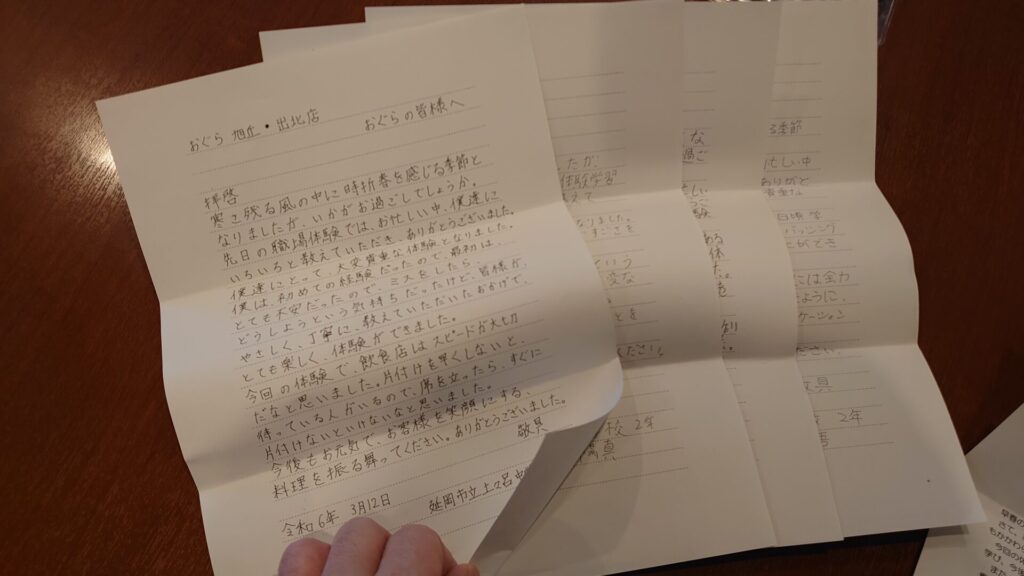 おぐら 旭丘・出北店
おぐらの皆様へ
拝啓
寒さ残る風の中に時折春を感じる季節と
なりましたが、いかがお過ごしでしょうか。
先日の職場体験では、お忙しい中、僕達に
いろいろと教えていただき、ありがとうございました。
僕達にとって、大変貴重な体験となりました。
僕は、初めての経験だったので、最初は、
とても不安だったので、ミスをしたら、
どうしようという気持ちだったけど、皆様が、
やさしく、丁寧に、教えていただいたおかげで、
とても楽しく、体験ができました。
今回の体験で、飲食店はスピードが大切
だなと思いました。片付けを早くしないと、
待っている人がいるので、席を立ったら、すぐに
片付けないといけないなと思いました。
今後もお元気で、お客様を笑顔にする、
料理を振る舞ってください。ありがとうございました。
敬具
令和6年 3月12日
延岡市立
たが、
体験学習
えて
なりました。
すごさを
という
変な
とを
ください。
校 2年
真
な
過ご
さい
験
ある
体
た。
る季節
忙しい中
ありがと
貴重な
日頃 学
バッシング
とができ
には全力
ように、
ケーション
ださい。
敬具
2年
早春の
さて、
今回の
学び、今後
また